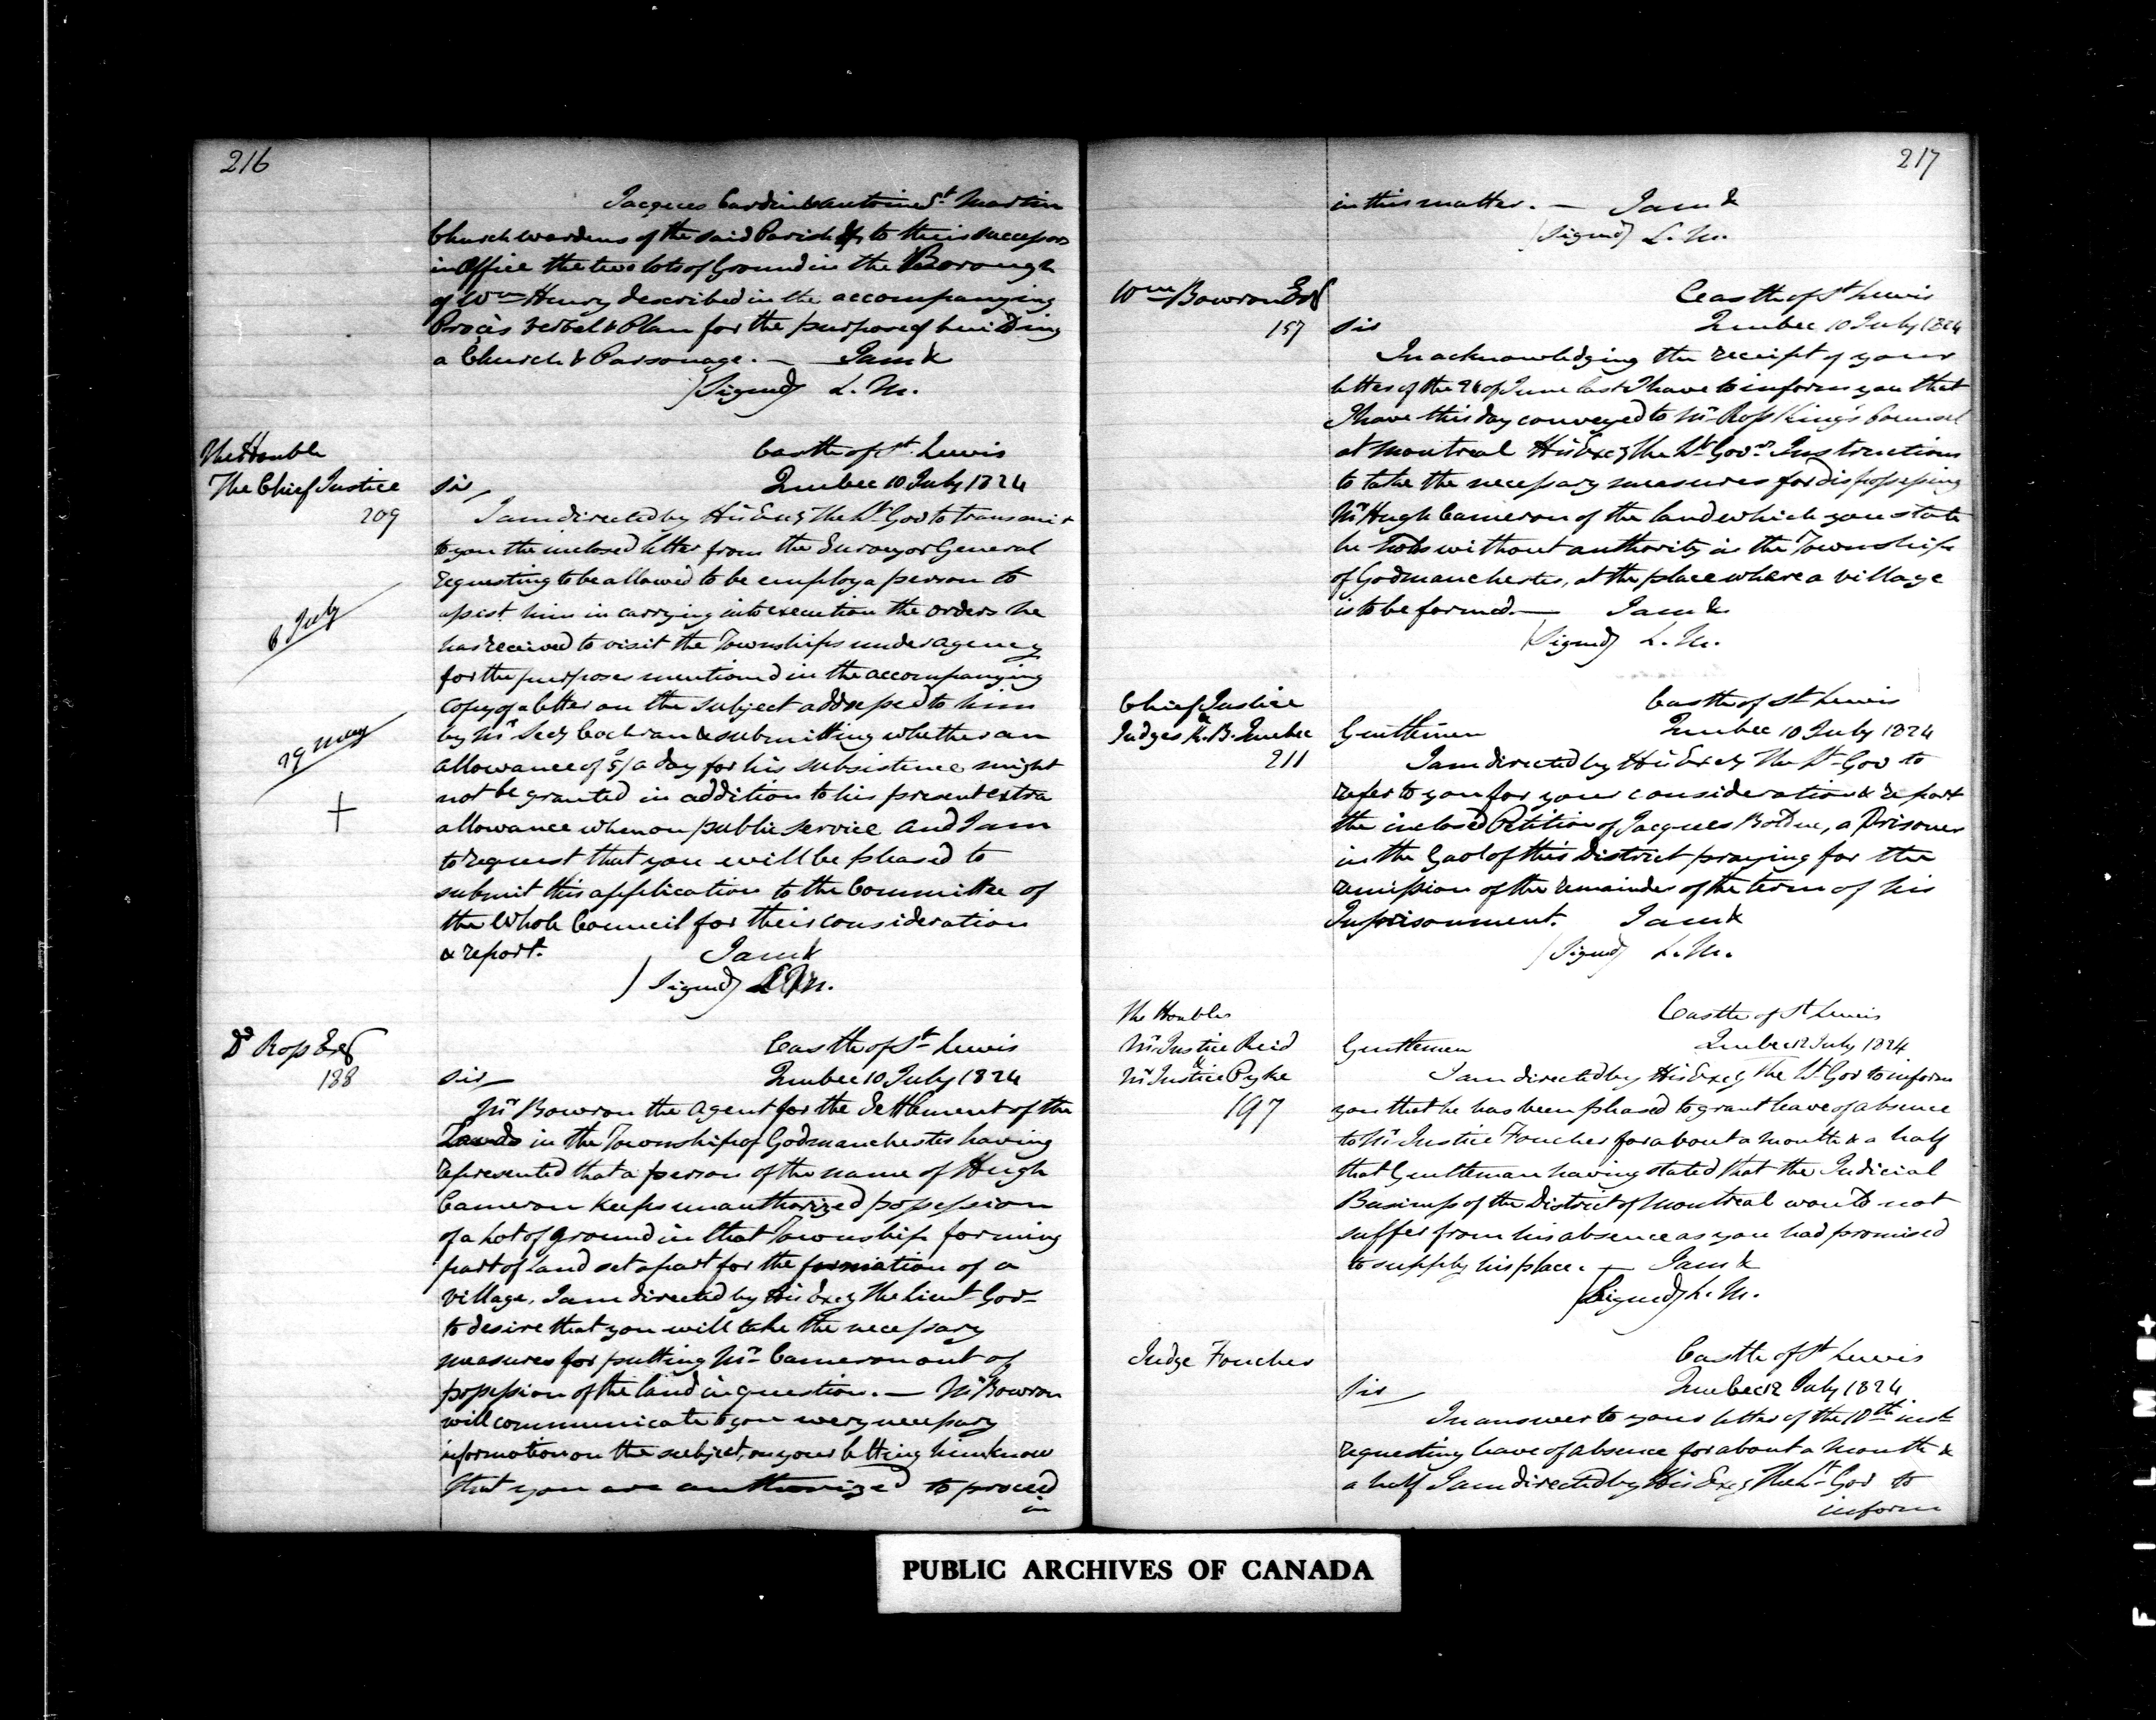 216
Jacques Cardin & Antoine St. Martin
Church wardens of the said Parish & to their successors
in Office the two lots of Ground in the Borough
of Wm Henry described in the accompanying
Procès Verbal & Plan for the purpose of building
a Church & Parsonage. — I am &
(Signed) L. M.
The Honble
The Chief Justice
209
Castle of St. Lewis
Sir, Quebec 10 July 1824
I am directed by His Excy The Lt Gov to transmit
to you the inclosed letter from the Surveyor General
requesting to be allowed to be employ a person to
assist him in carrying into execution the orders he
6 July
has received to visit the Townships under agency
for the purposes mentioned in the accompanying
copy of a letter on the subject addressed to him
29 May
by Mr Secy Cochran & submitting whether an
allowance of 5/ a day for his subsistence might
+
not be granted in addition to his present extra
allowance when on public service and I am
to request that you will be pleased to
submit this application to the Committee of
the Whole Council for their consideration
& report. I am &
(Signed) L. M.
Dd Ross Esqr
188
Castle of St Lewis
Sir — Quebec 10 July 1824
Mr Bowron the agent for the Settlement of the
Lands in the Township of Godmanchester having
represented that a person of the name of Hugh
Cameron keeps unauthorized possession
of a Lot of ground in that Township forming
part of Land set apart for the formation of a
village, I am directed by His Excy The Lieut Gov
to desire that you will take the necessary
measures for putting Mr Cameron out of
possession of the land in question. — Mr Bowron
will communicate to you every necessary
information on the subject, on your letting him know
that you are authorized to proceed
in
217
in this matter. — I am &
(Signed) L. M.
Wm Bowron Esqr
157
Castle of St Lewis
Sir Quebec 10 July 1824
In acknowledging the receipt of your
letter of the 24 of June last I have to inform you that
I have this day conveyed to Mr Ross King's Counsel
at Montreal His Excy The Lt Govrs Instructions
to take the necessary measures for dispossessing
Mr Hugh Cameron of the land which you state
he holds without authority in the Township
of Godmanchester, at the place where a village
is to be formed. — I am &
(Signed) L. M.
Chief Justice
&
Judges K. B. Quebec
211
Castle of St Lewis
Gentlemen Quebec 10 July 1824
I am directed by His Excy The Lt Gov to
refer to you for your consideration & report
the inclosed Petition of Jacques Bolduc, a Prisoner
in the Gaol of this District praying for the
remission of the remainder of the term of his
Imprisonment. I am &
(Signed) L. M.
The Honbles
Mr Justice Reid
&
Mr Justice Pyke
197
Castle of St Lewis
Gentlemen Quebec 12 July 1824
I am directed by His Excy The Lt Gov to inform
you that he has been pleased to grant leave of absence
to Mr Justice Foucher for about a month & a half
that Gentleman having stated that the Judicial
Business of the District of Montreal would not
suffer from his absence as you had promised
to supply his place. — I am &
(Signed) L. M.
Judge Foucher
Castle of St Lewis
Sir — Quebec 12 July 1824
In answer to your letter of the 10th inst
requesting leave of absence for about a Month &
a half I am directed by His Excy The Lt Gov to
inform
PUBLIC ARCHIVES OF CANADA
FILMED